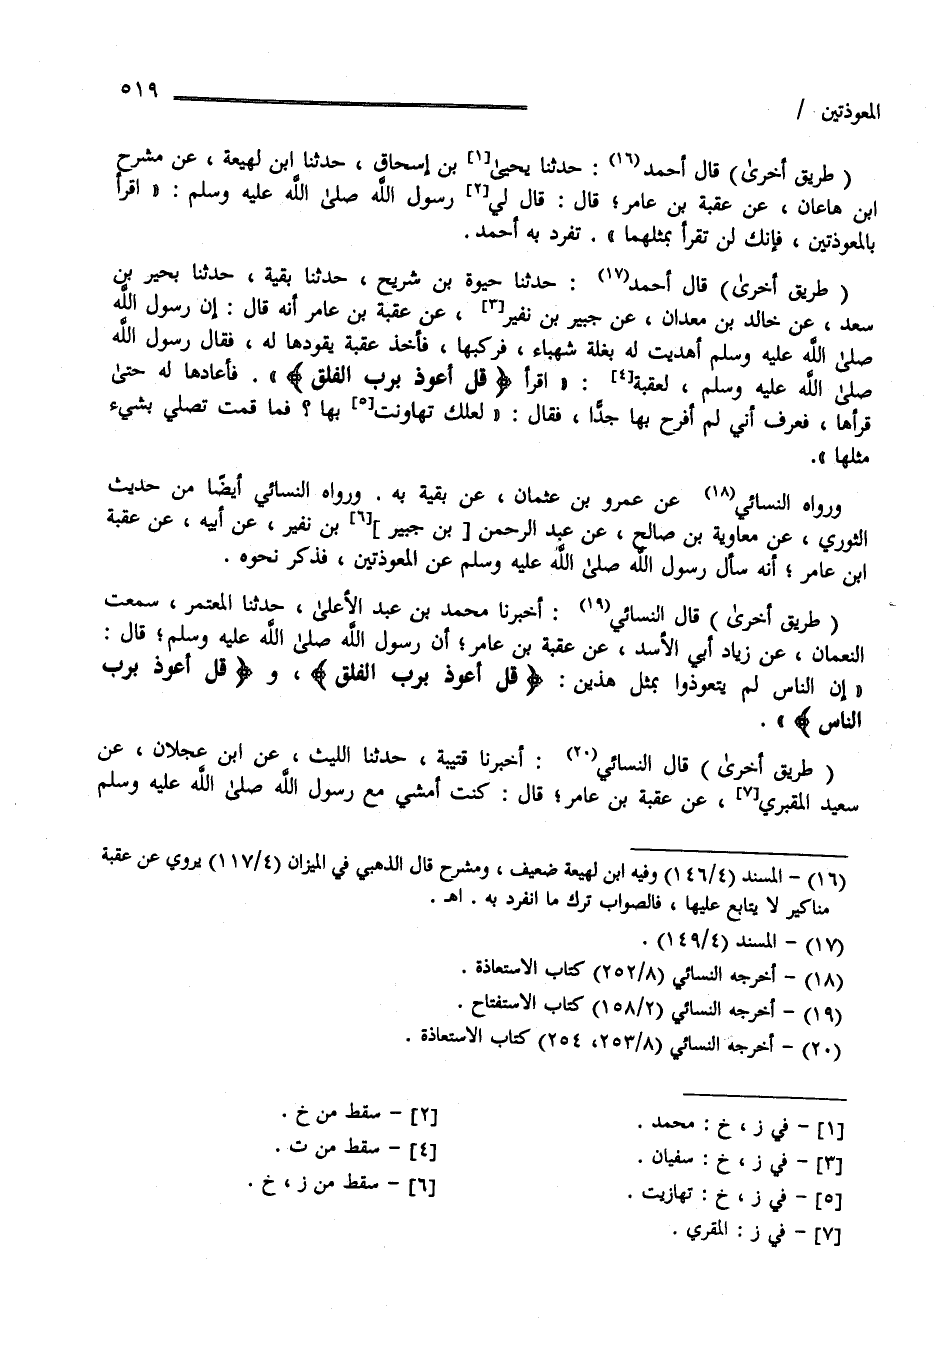 المعوذتين / ٥١٩
( طريق أخرىٰ) قال أحمد(١٦) : حدثنا يحيىٰ[١] بن إسحاق ، حدثنا ابن لهيعة ، عن مشرح
ابن هاعان ، عن عقبة بن عامر؛ قال : قال لي[٢] رسول اللَّه صلىٰ اللَّه عليه وسلم : « اقرأ
بالمعوذتين ، فإنك لن تقرأ بمثلهما » . تفرد به أحمد.
( طريق أخرىٰ) قال أحمد(١٧) : حدثنا حيوة بن شريح ، حدثنا بقية ، حدثنا بحير بن
سعد ، عن خالد بن معدان ، عن جبير بن نفير[٣] ، عن عقبة بن عامر أنه قال : إن رسول اللَّه
صلىٰ اللَّه عليه وسلم أهديت له بغلة شهباء ، فركبها ، فأخذ عقبة يقودها له ، فقال رسول اللَّه
صلىٰ اللَّه عليه وسلم ، لعقبة[٤] : « اقرأ ﴿ قل أعوذ برب الفلق ﴾ » . فأعادها له حتىٰ
قرأها ، فعرف أني لم أفرح بها جدًّا ، فقال : « لعلك تهاونت[٥] بها ؟ فما قمت تصلي بشيء
مثلها ».
ورواه النسائي(١٨) عن عمرو بن عثمان ، عن بقية به . ورواه النسائي أيضًا من حديث
الثوري ، عن معاوية بن صالح ، عن عبد الرحمن [ بن جبير ][٦] بن نفير ، عن أبيه ، عن عقبة
ابن عامر ؛ أنه سأل رسول اللَّه صلىٰ اللَّه عليه وسلم عن المعوذتين ، فذكر نحوه .
( طريق أخرىٰ ) قال النسائي(١٩) : أخبرنا محمد بن عبد الأعلىٰ ، حدثنا المعتمر ، سمعت
النعمان ، عن زياد أبي الأسد ، عن عقبة بن عامر؛ أن رسول اللَّه صلىٰ اللَّه عليه وسلم؛ قال :
« إن الناس لم يتعوذوا بمثل هذين : ﴿ قل أعوذ برب الفلق ﴾ ، و ﴿ قل أعوذ برب
الناس ﴾ » .
( طريق أخرىٰ ) قال النسائي(٢٠) : أخبرنا قتيبة ، حدثنا الليث ، عن ابن عجلان ، عن
سعيد المقبري[٧] ، عن عقبة بن عامر؛ قال : كنت أمشي مع رسول اللَّه صلىٰ اللَّه عليه وسلم
(١٦) - المسند (١٤٦/٤) وفيه ابن لهيعة ضعيف ، ومشرح قال الذهبي في الميزان (١١٧/٤) يروي عن عقبة
مناكير لا يتابع عليها ، فالصواب ترك ما انفرد به . اهـ .
(١٧) - المسند (١٤٩/٤) .
(١٨) - أخرجه النسائي (٢٥٢/٨) كتاب الاستعاذة .
(١٩) - أخرجه النسائي (١٥٨/٢) كتاب الاستفتاح .
(٢٠) - أخرجه النسائي (٢٥٣/٨، ٢٥٤) كتاب الاستعاذة .
[١] - في ز ، خ : محمد . [٢] - سقط من خ .
[٣] - في ز ، خ : سفيان . [٤] - سقط من ت .
[٥] - في ز ، خ : تهازيت . [٦] - سقط من ز ، خ .
[٧] - في ز : المقري .